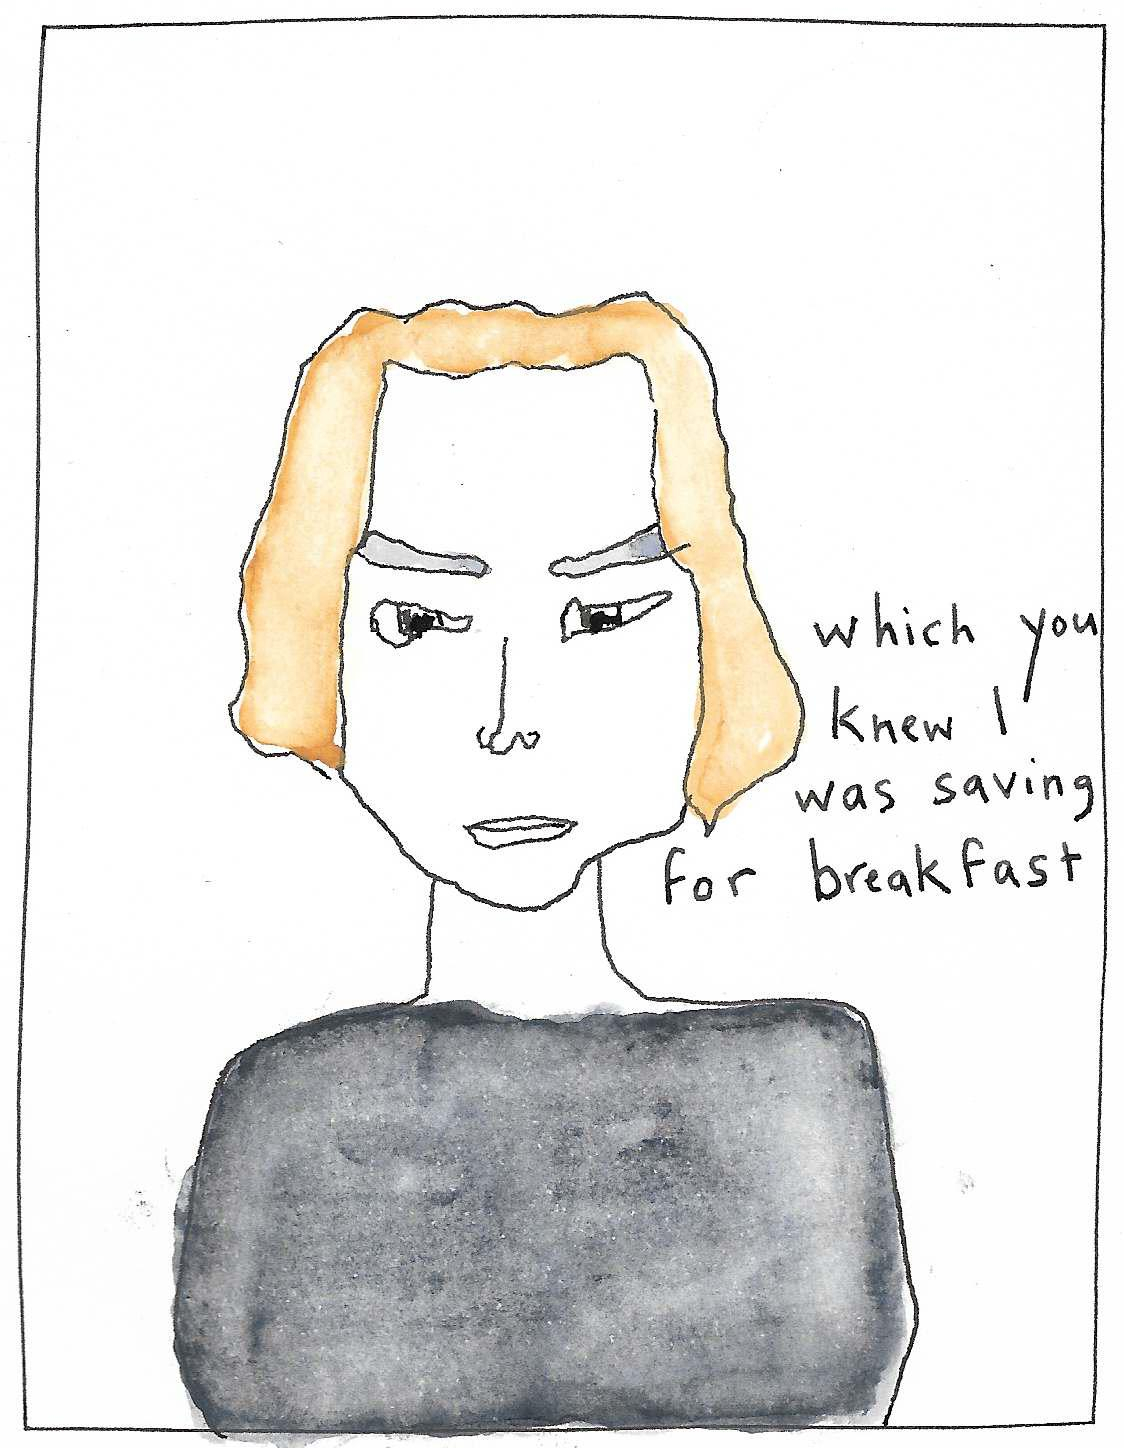 which you
knew I
was saving
for breakfast